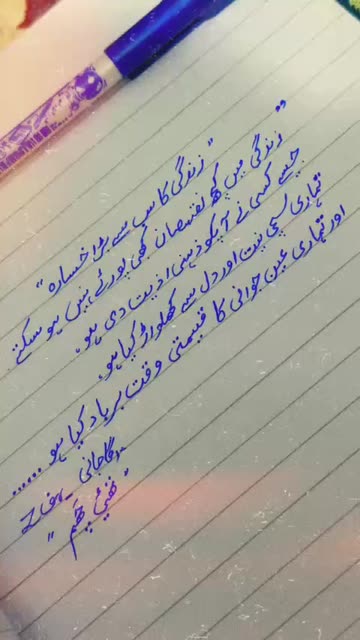 "زندگی کا سب سے بڑا خسارہ"
"زندگی میں کچھ نقصان کبھی پورے نہیں ہو سکتے
جیسے کسی نے آپکو ذہنی اذیت دی ہو۔
تمہاری سچی نیت اور دل سے کھلواڑ کیا ہو۔
اور تمہاری عین جوانی کا قیمتی وقت برباد کیا ہو ......